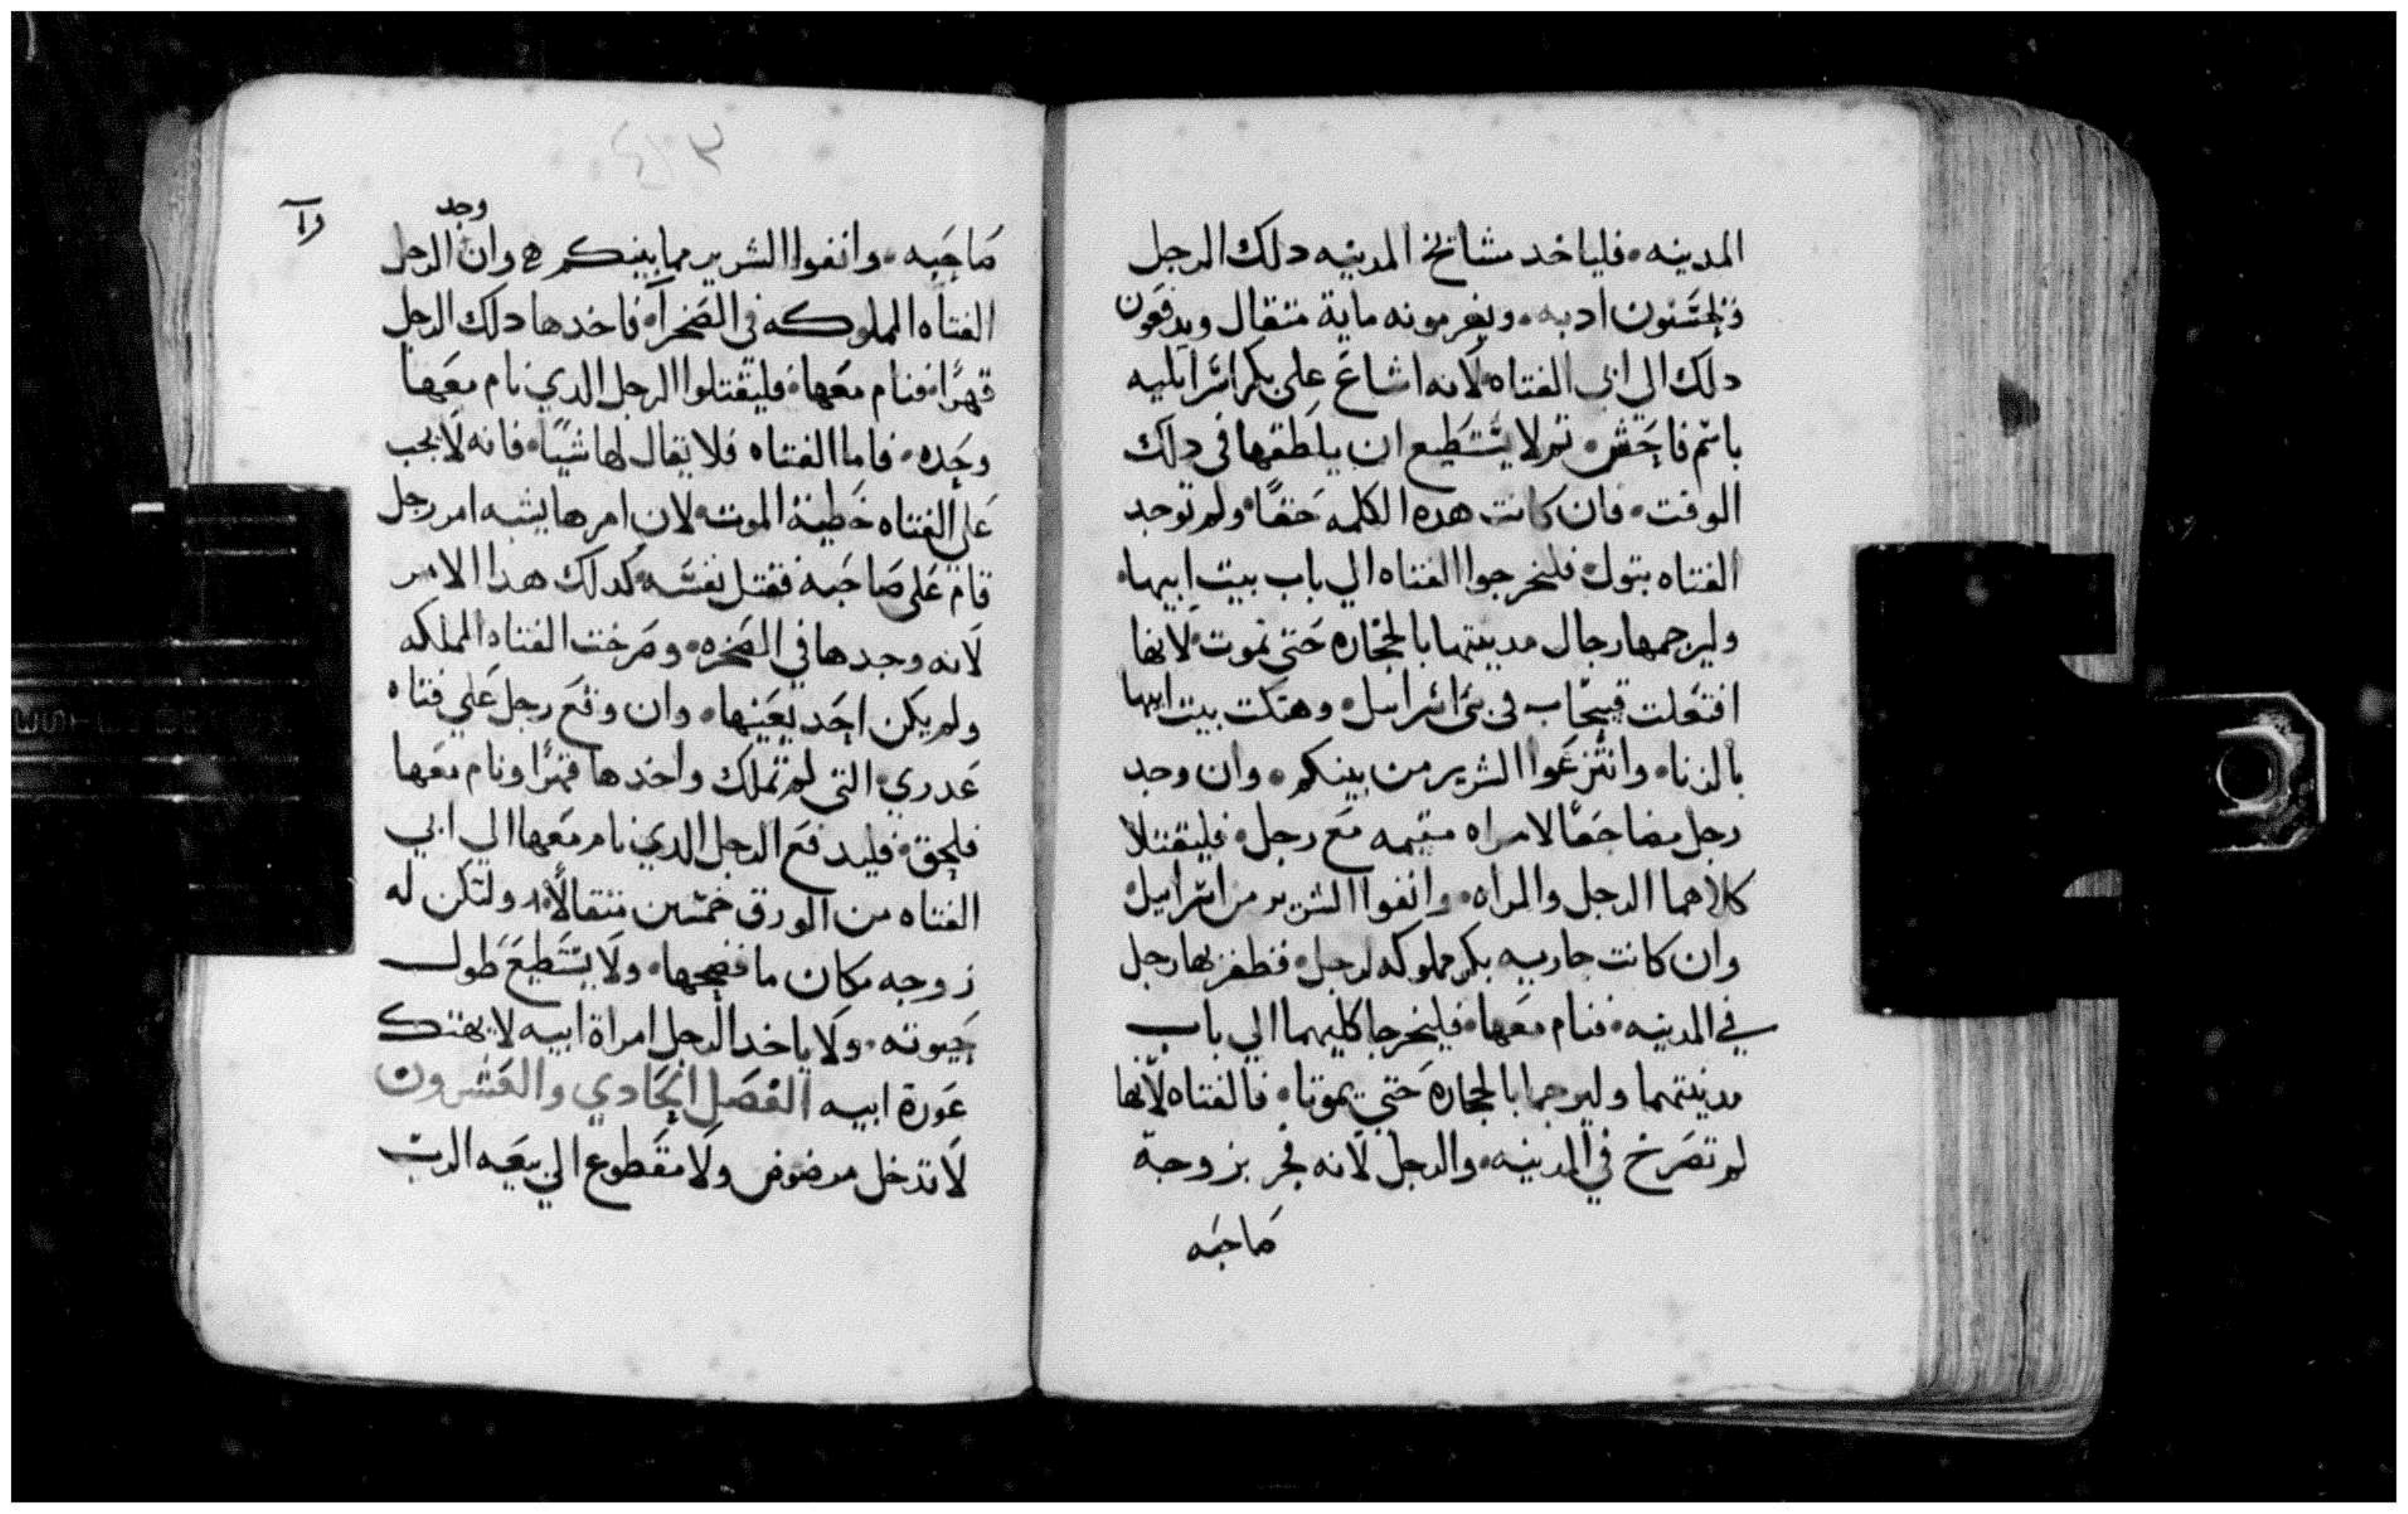 المدينه. فلياخد مشائخ المدينه دلك الرجل
فيحسنون ادبه. ويغرمونه ماية متقال ويدفعون
دلك الي ابي الفتاه لانه اشاع علي بكر اسراييليه
باسم فاحش. تم لا يستطيع ان يطلقها في دلك
الوقت. فان كانت هده الكلمه حقا. ولم توجد
الفتاه بتول. فليخرجوا الفتاه الي باب بيت ابيها.
وليرجمها رجال مدينتها بالحجاره حتي تموت لانها
افتعلت في بني اسراييل. وهتكت بيت ابيها
بالزنا. وانتزعوا الشرير من بينكم. وان وجد
رجل مضاجعا لامراه مقيمه مع رجل. فليقتلا
كلاهما الرجل والمراه. وانفوا الشرير من اسراييل.
وان كانت جاريه بكر مملوكه لرجل. فظفر بها رجل
في المدينه. فنام معها. فليخرجا كليهما الي باب
مدينتهما وليرجما بالحجاره حتي يموتا. فالفتاه لانها
لم تصرخ في المدينه. والرجل لانه فجر بزوجة
صاحبه
صاحبه. وانفوا الشرير مما بينكم ه وان وجد الرجل
الفتاه المملوكه في الصحرا. فاخدها دلك الرجل
قهرا. فنام معها. فليقتلوا الرجل الدي نام معها
وحده. فاما الفتاه فلا يقال لها شيا. فانه لا يجب
علي الفتاه خطية الموت. لان امرها يشبه امر رجل
قام علي صاحبه فقتل نفسه. كدلك هدا الامر
لانه وجدها في الصحره. وصرخت الفتاه المملكه
ولم يكن احد يعينها. وان وقع رجل علي فتاه
عدري. التي لم تملك واخدها قهرا ونام معها
فلحق. فليدفع الرجل الدي نام معها الي ابي
الفتاه من الورق خمسين متقالا. ولتكن له
زوجه مكان ما فضحها. ولا يستطيع طول
حيوته. ولا ياخد الرجل امراة ابيه لا يهتك
عورة ابيه الفصل الحادي والعشرون
لا تدخل مرضوض ولا مقطوع الي بيعه الرب